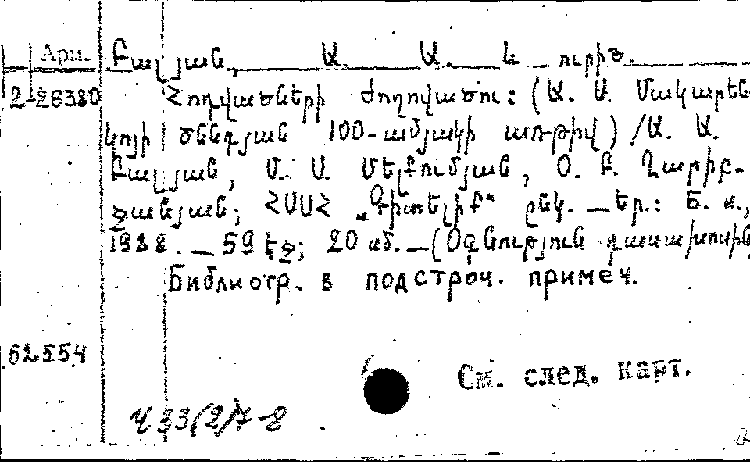 Арм. Բալյան, Ա. Ա. և ուրիշ.
2-28380 Հոդվածների ժողովածու: (Ա. Ս. Մակարեն-
կոյի ծննդյան 100-ամյակի առթիվ) /Ա. Ա.
Բալյան, Մ. Ս. Մելքումյան, Օ. Բ. Ղարիբ-
ջանյան; ՀՍՍՀ „Գիտելիք“ ընկ. —Եր.: Բ. և.,
1988. — 59 էջ; 20 սմ. —(Օգնություն դասախոսին
Библиогр. в подстроч. примеч.
62554
См. след. карт.
Ч33(2)7-8